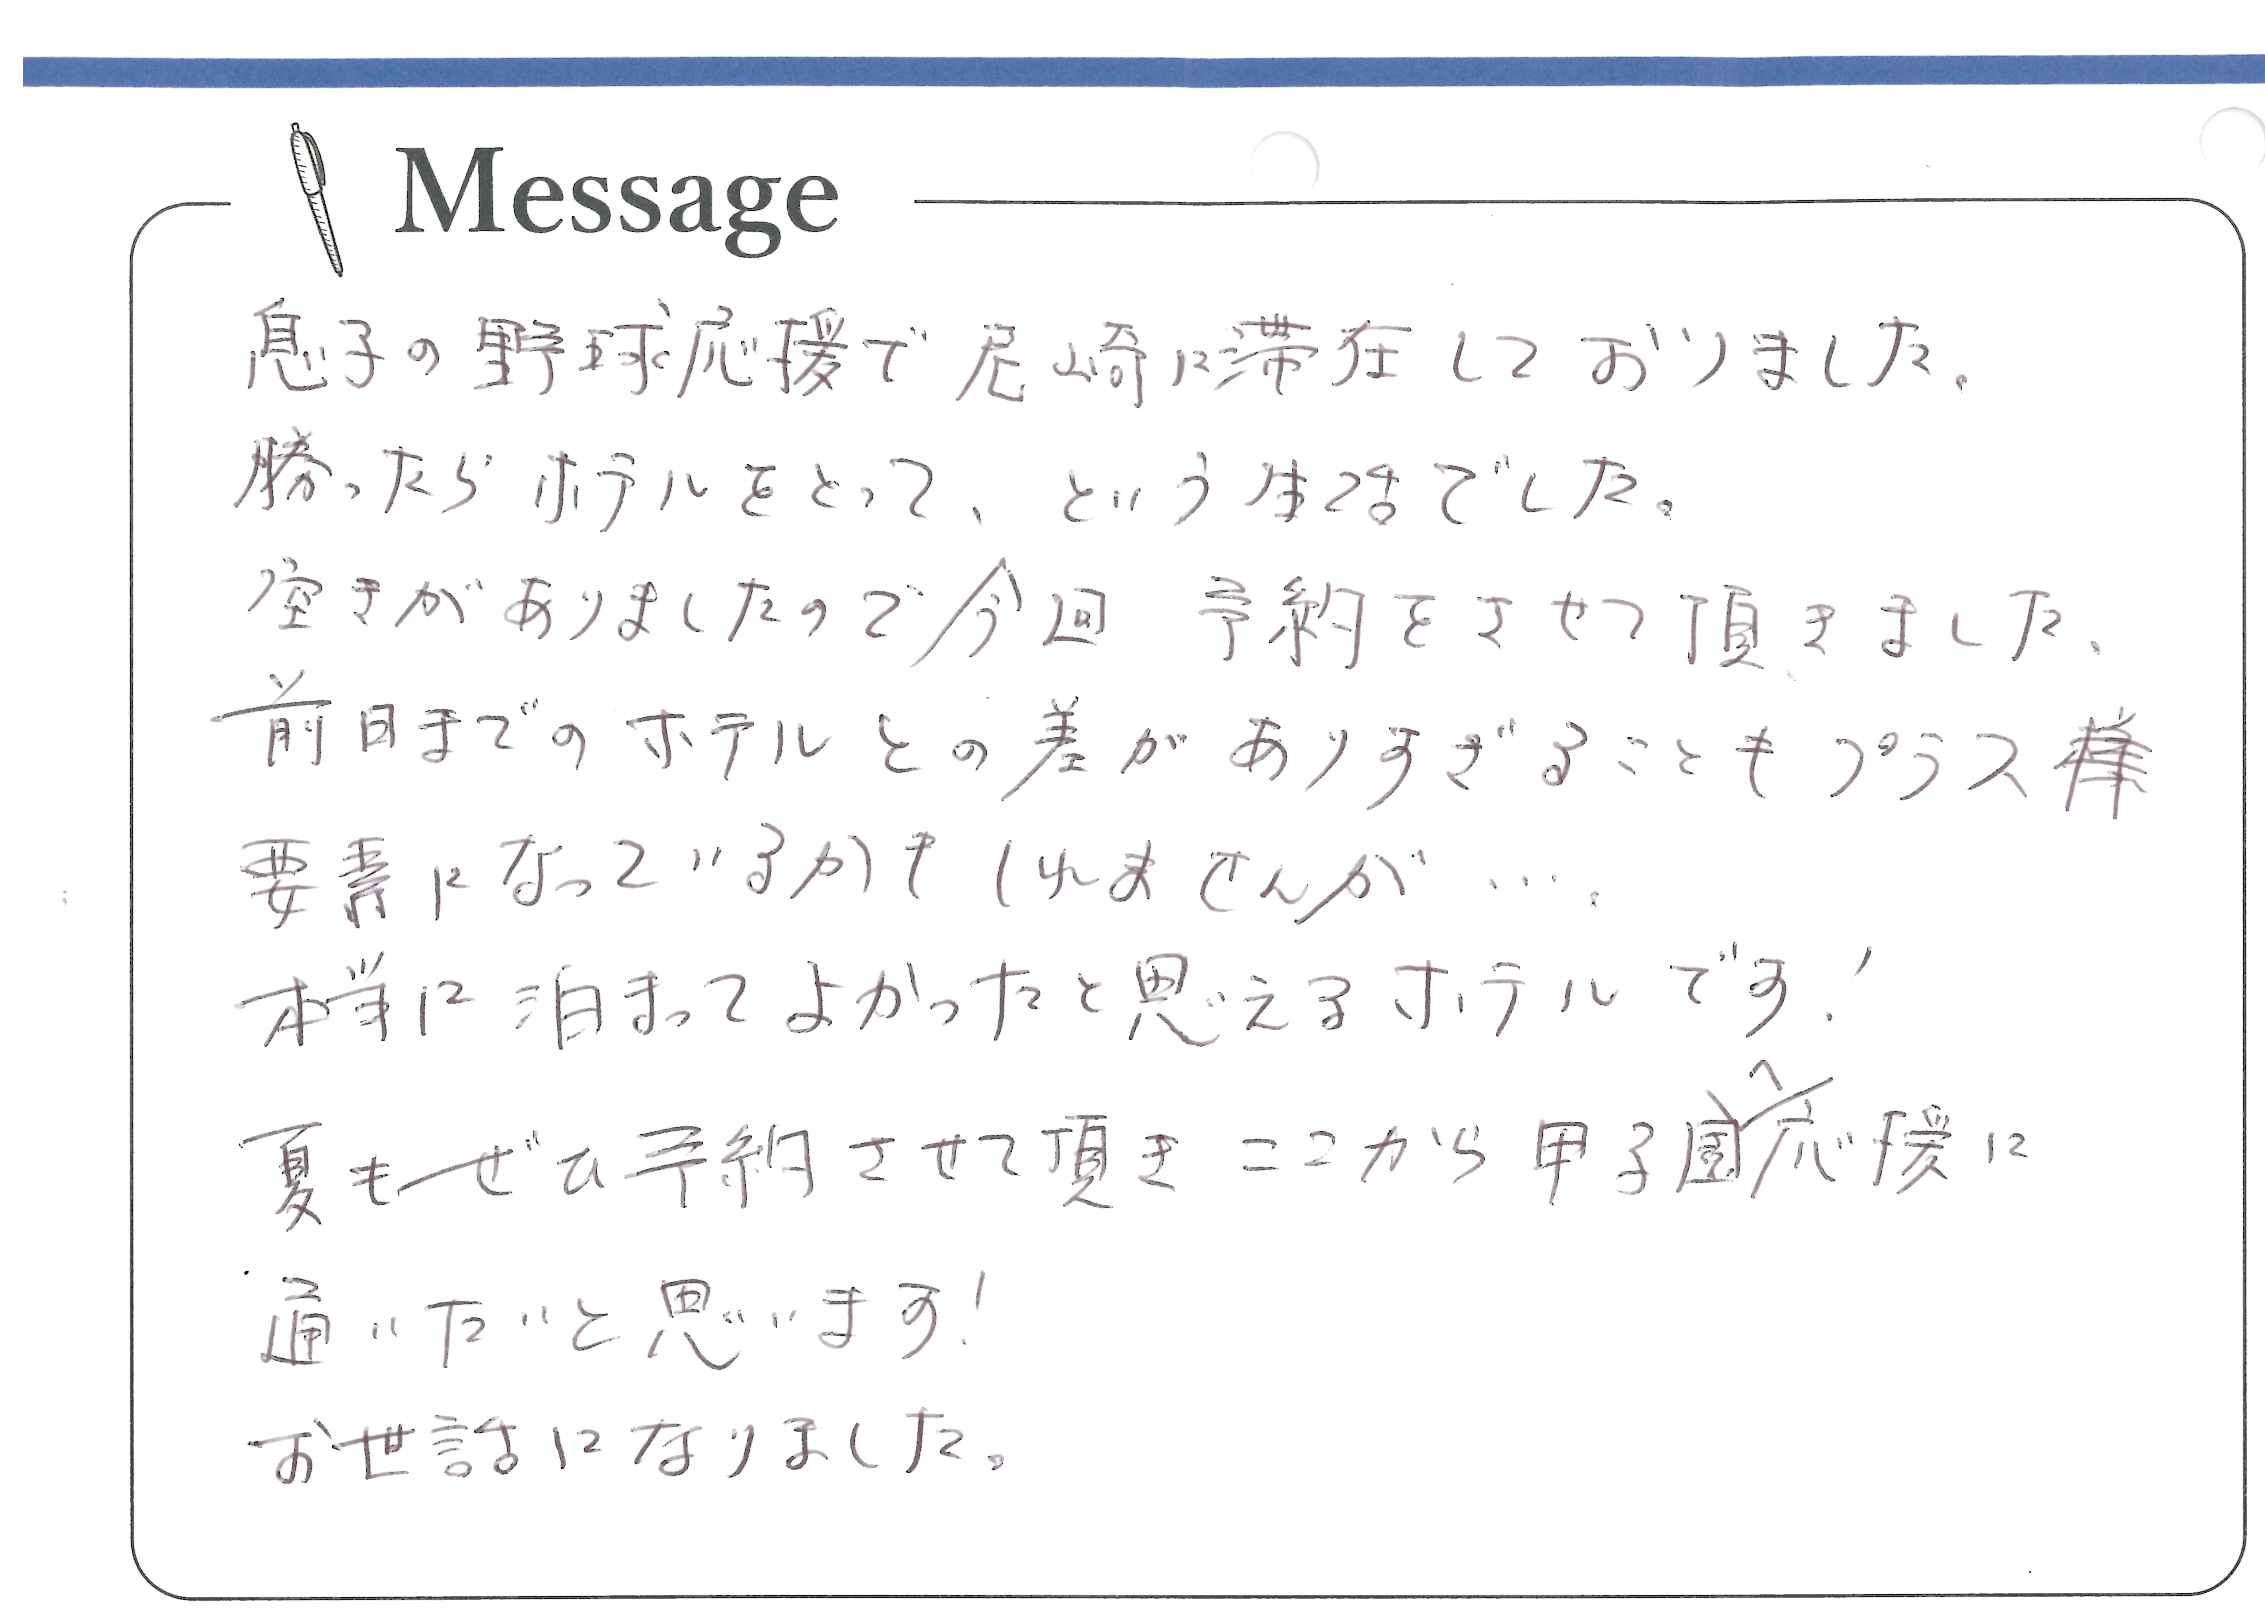 Message
息子の野球応援で尼崎に滞在しておりました。
勝ったらホテルをとって、という生活でした。
空きがありましたので今回 予約をさせて頂きました、
前日までのホテルとの差がありすぎることもプラス
要素になっているかもしれませんが….
本当に泊まってよかったと思えるホテルです!
夏もぜひ予約させて頂きここから甲子園へ応援に
通いたいと思います!
お世話になりました。